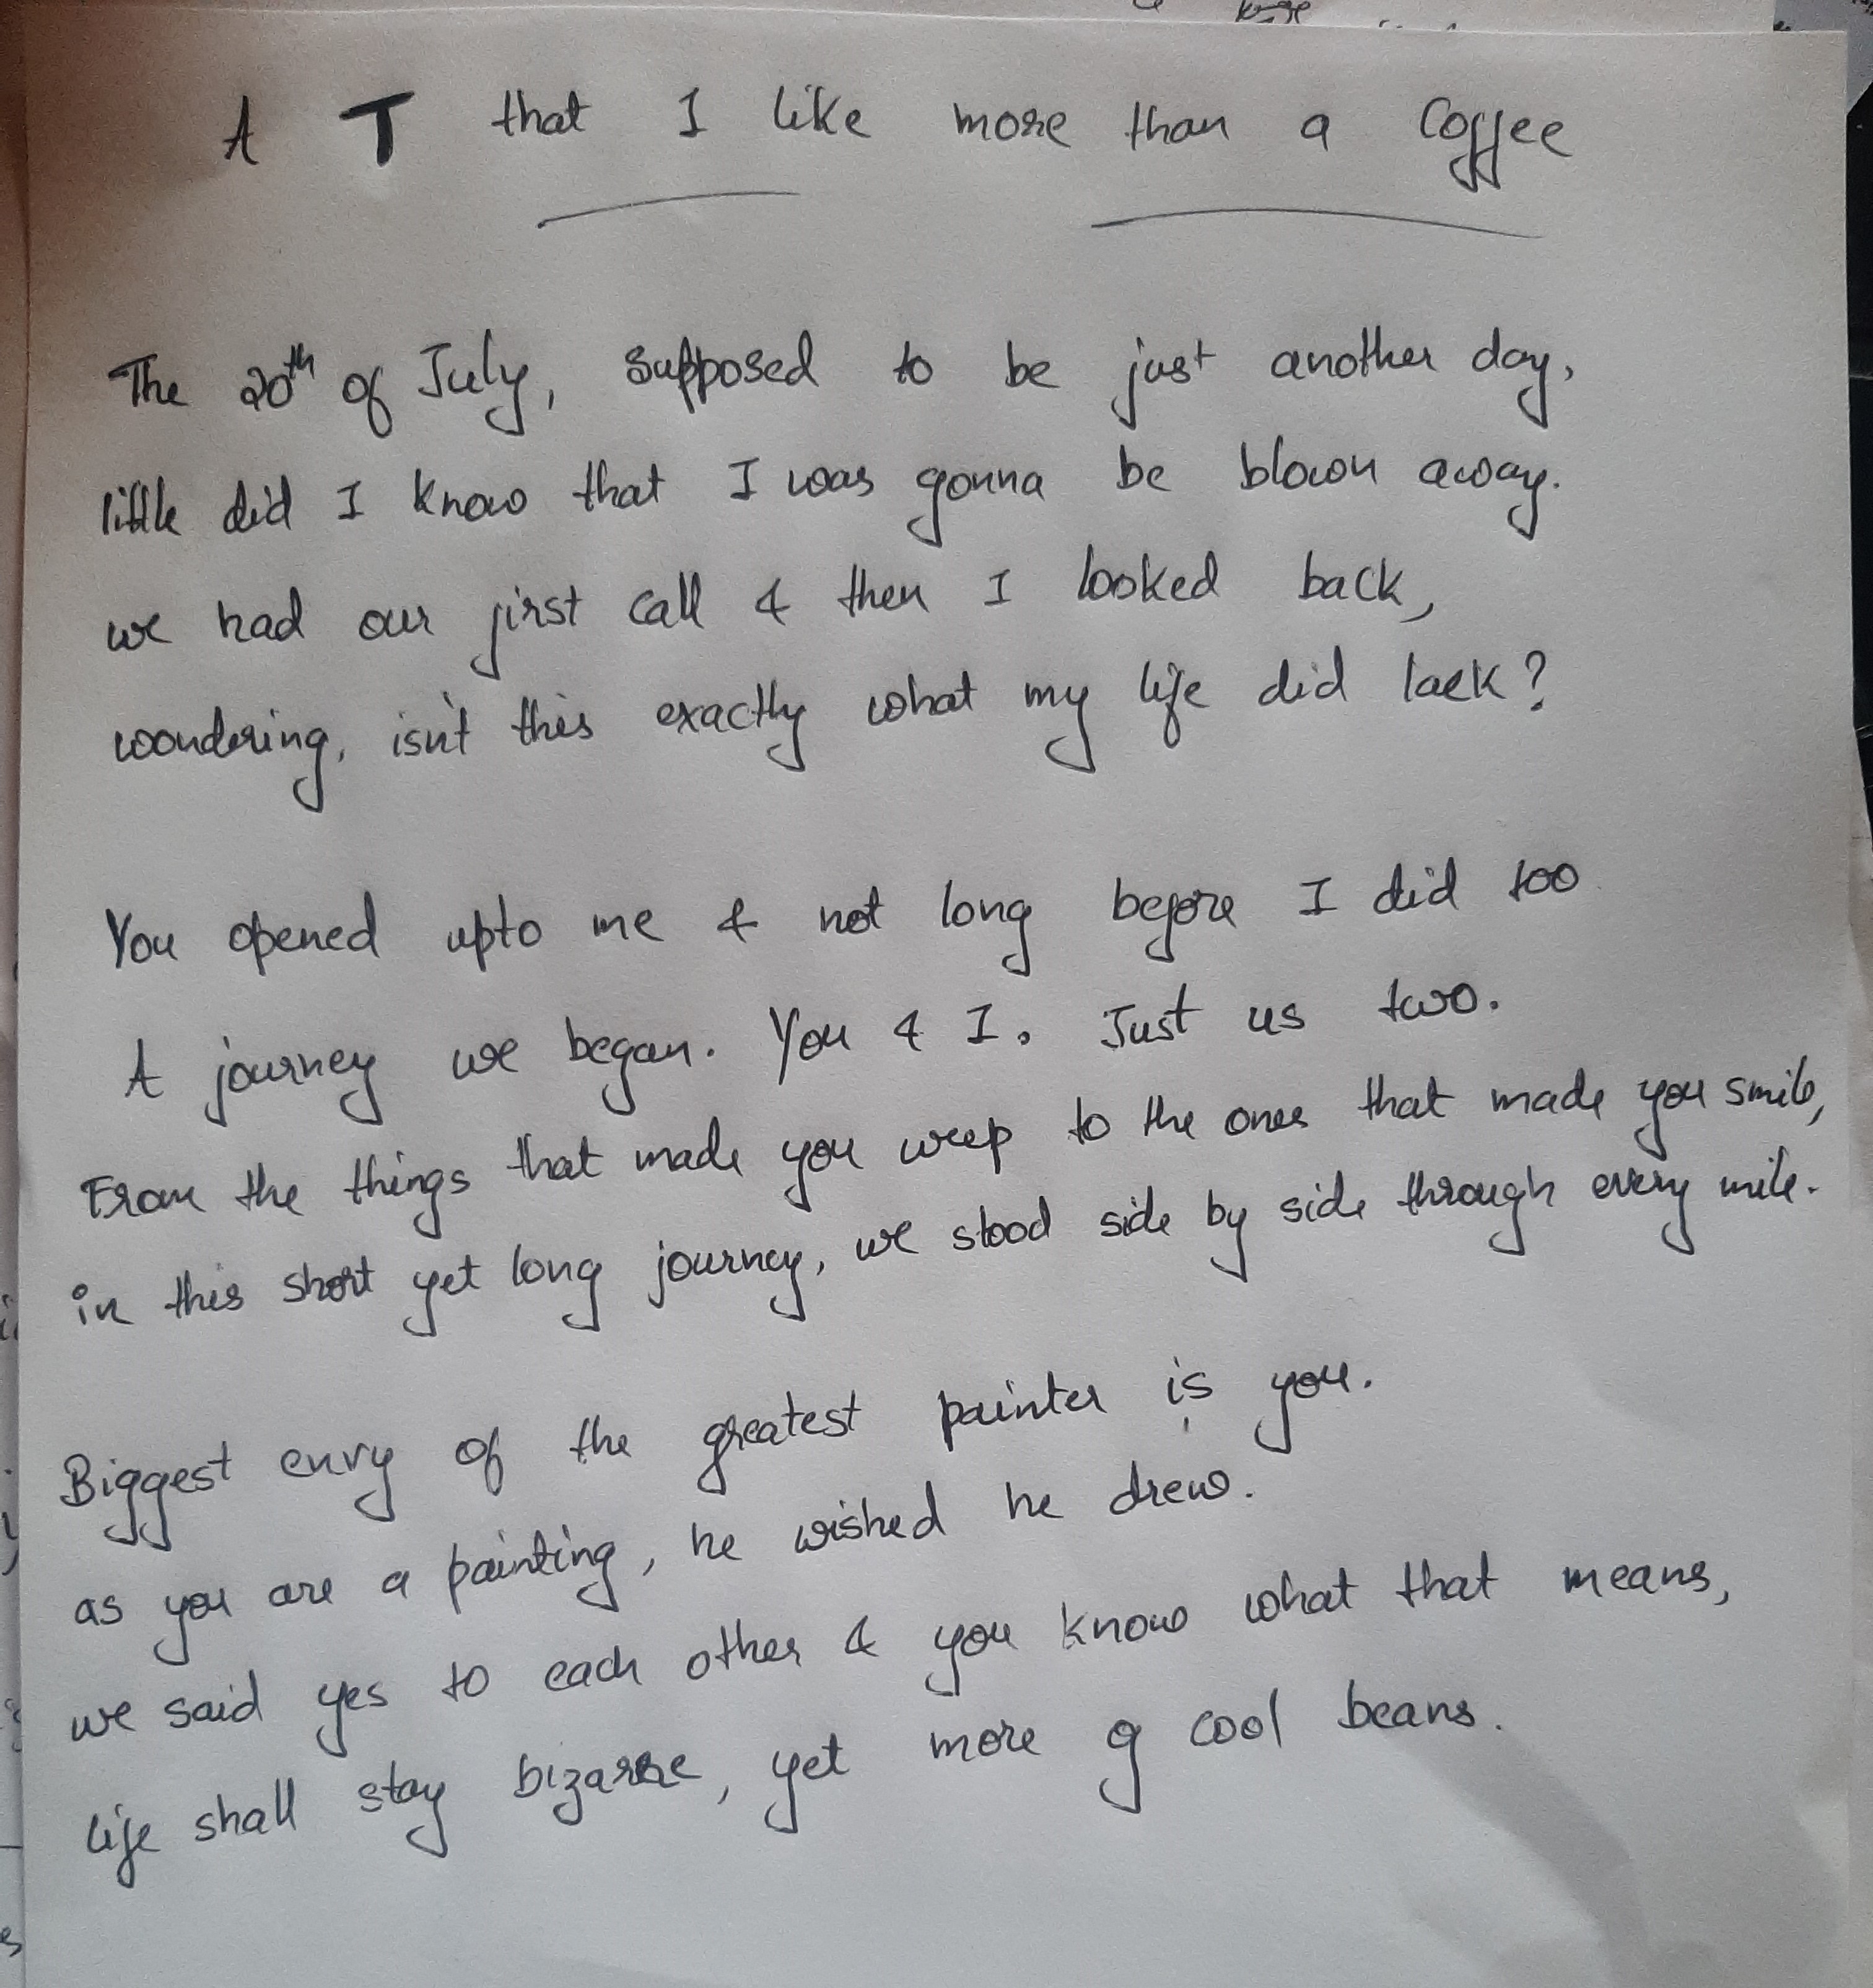 A T that I like more than a Coffee
The 20th of July, supposed to be just another day,
little did I know that I was gonna be blown away.
we had our first call & then I looked back,
wondering, isn't this exactly what my life did lack?
You opened upto me & not long before I did too
A journey we began. You & I. Just us two.
From the things that made you weep to the ones that made you smile,
in this short yet long journey, we stood side by side through every mile.
Biggest envy of the greatest painter is you.
as you are a painting, he wished he drew.
we said yes to each other & you know what that means,
life shall stay bizarre, yet more of cool beans.